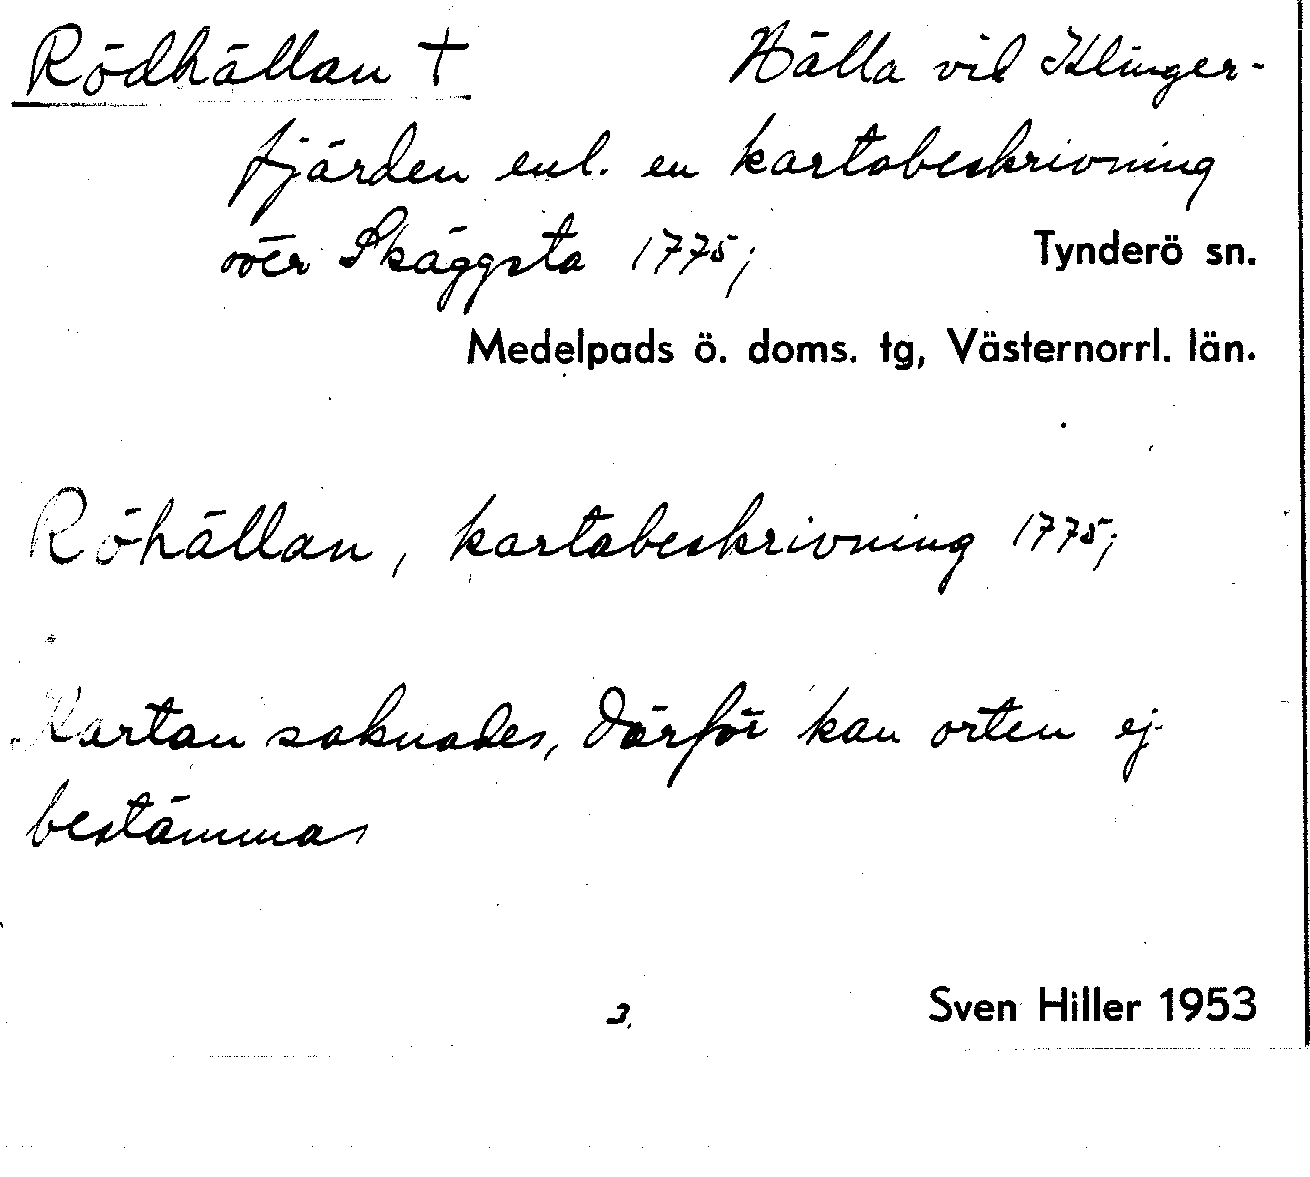 Rödhällan † Hälla vid Klinger-
fjärden enl. en kartabeskrivning
över Skäggsta 1775; Tynderö sn.
Medelpads ö. doms. tg, Västernorrl. län.
Röhällan, kartabeskrivning 1775;
Kartan saknades, därför kan orten ej
bestämmas
3. Sven Hiller 1953